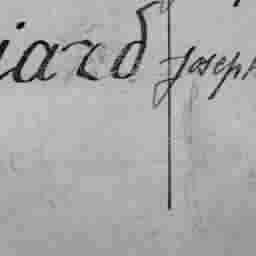 iard Joseph